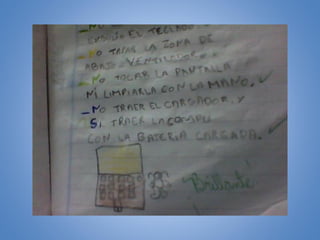 _NO
ENSUCIO EL TECLADO.
_NO TAPAR LA ZONA DE
ABAJO VENTILADOR.
_NO TOCAR LA PANTALLA
NI LIMPIARLA CON LA MANO.
_NO TRAER EL CARGADOR. Y
SI TRAER LA COMPU
CON LA BATERIA CARGADA.
Brillante